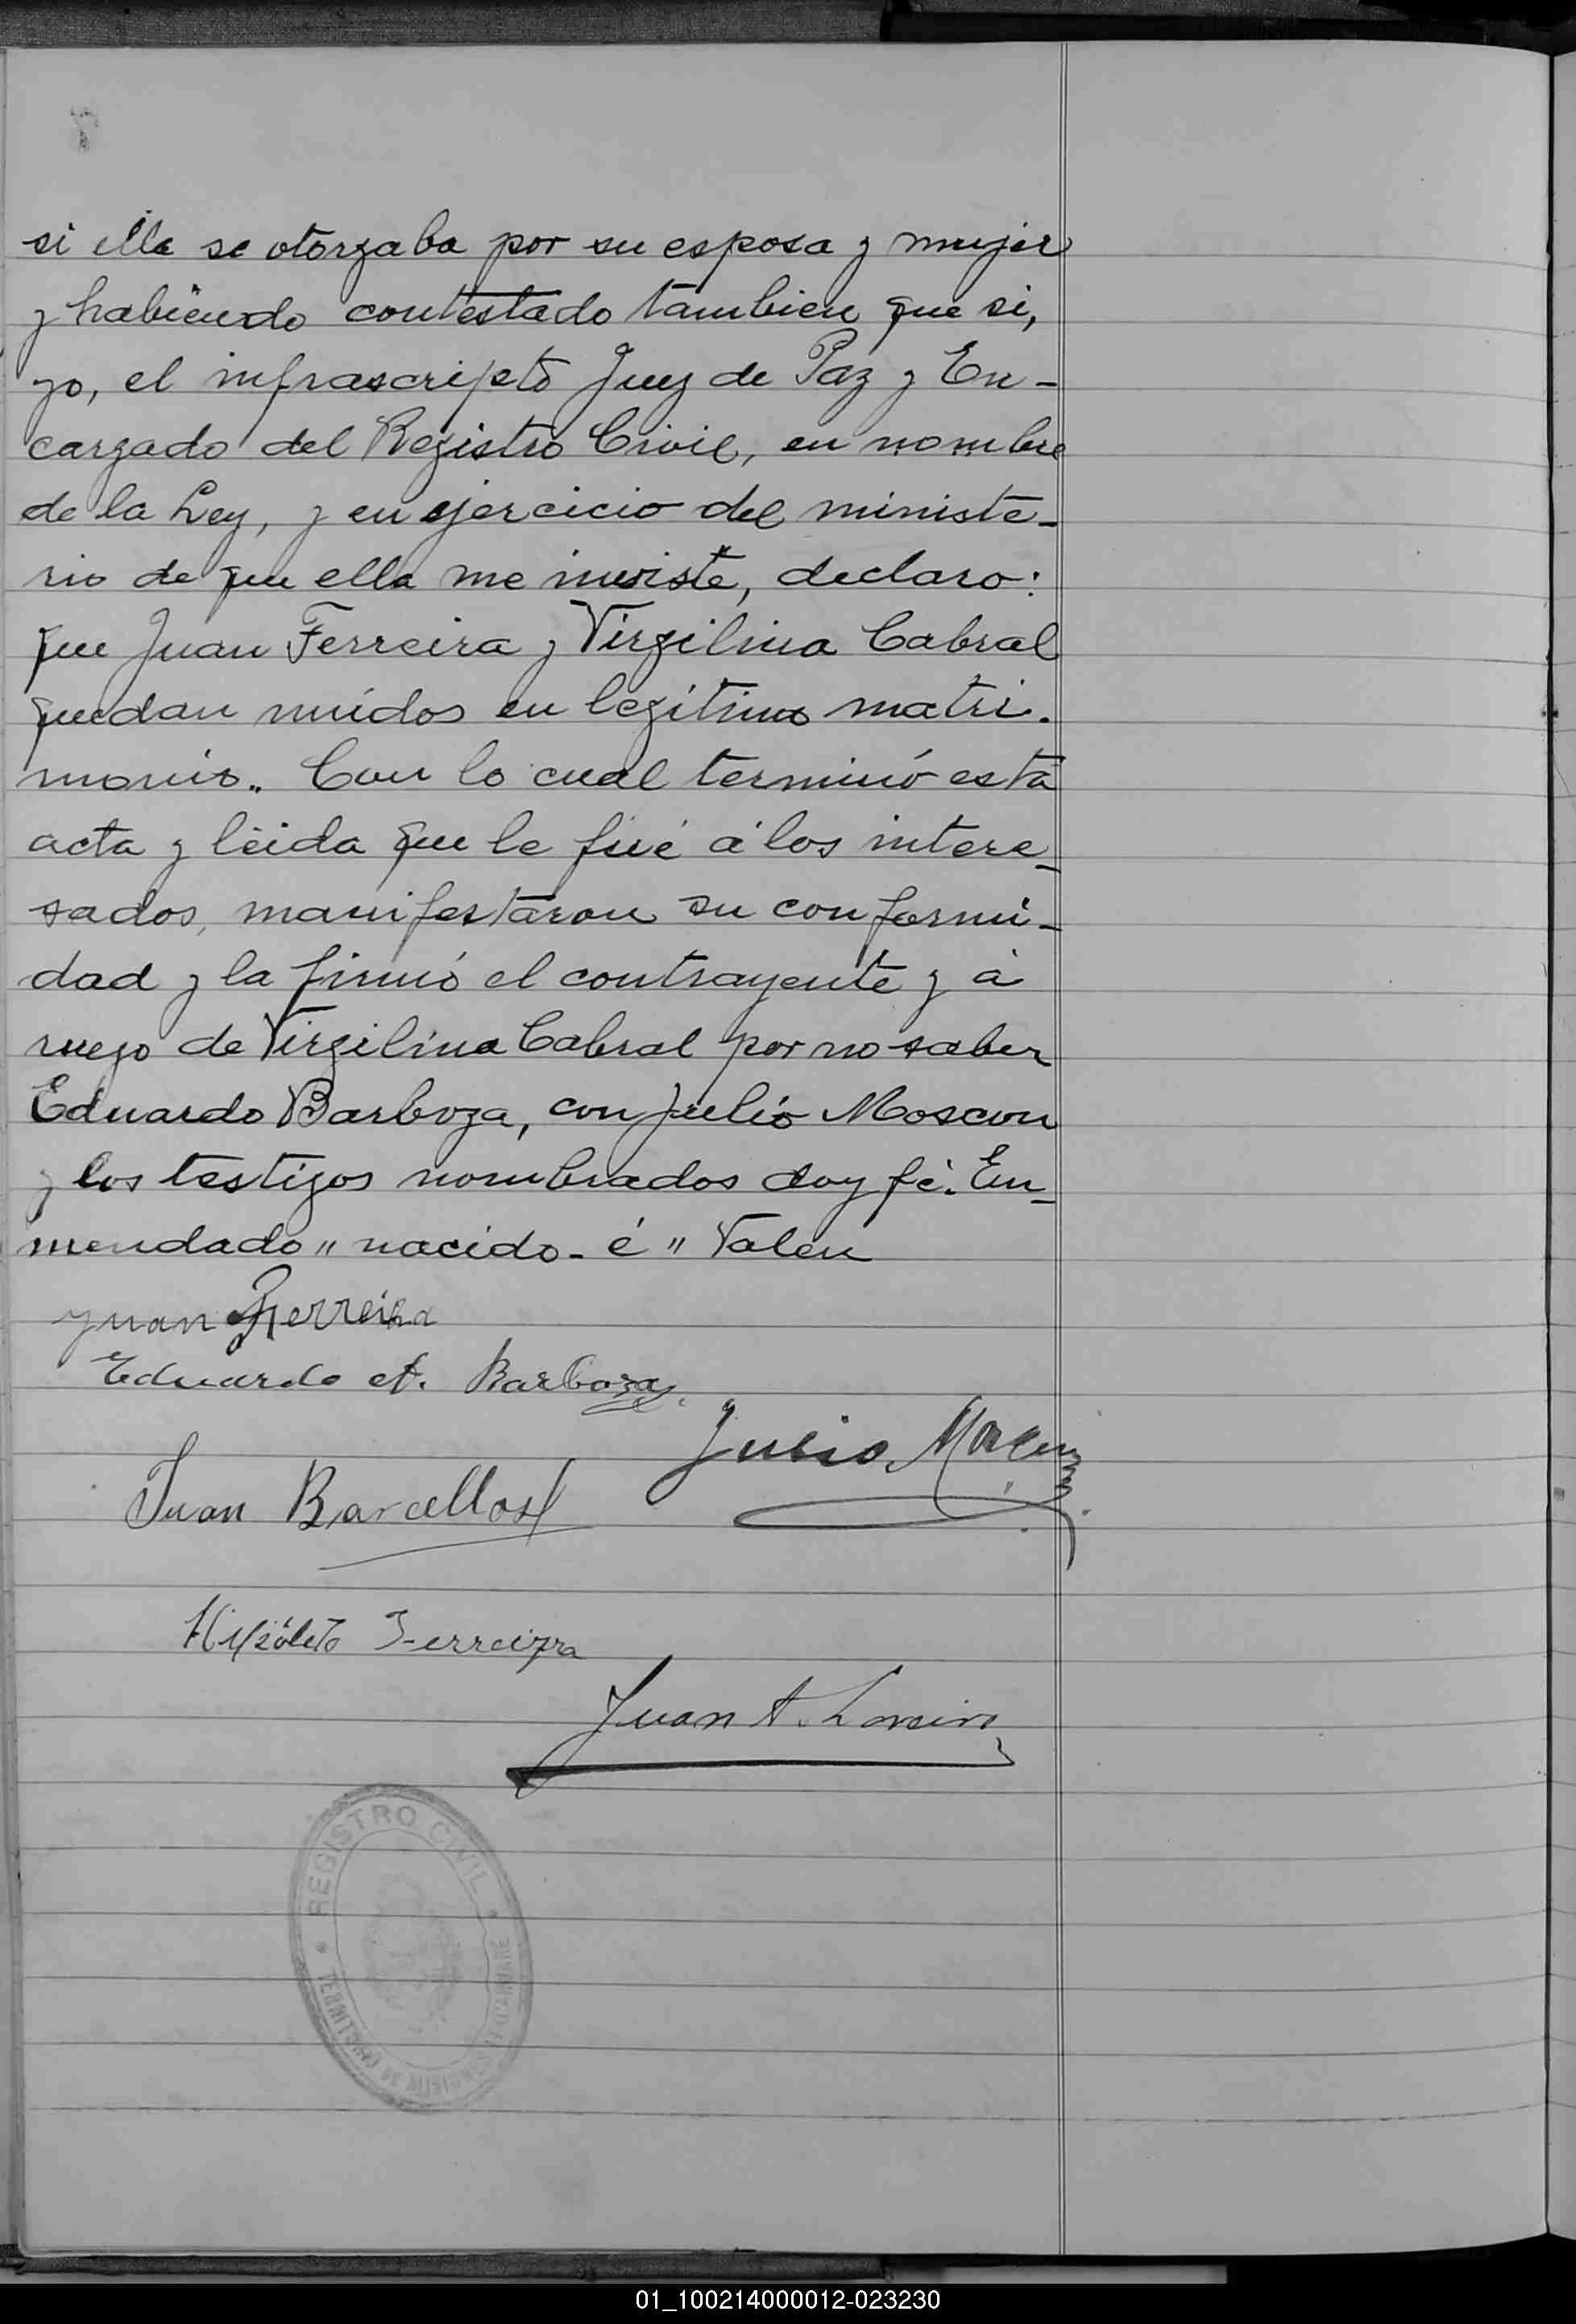 si ella se otorgaba por su esposa y mujer
y habiendo contestado tambien que si,
yo, el infrascripto Juez de Paz y En-
cargado del Registro Civil, en nombre
de la Ley, y en ejercicio del ministe-
rio de que ella me inviste, declaro:
que Juan Ferreira y Virgilina Cabral
quedan unídos en legítimo matri-
monio.. Con lo cual terminó esta
acta y léida que le fué á los intere-
sados, manifestaron su conformi-
dad y la firmó el contrayente y á
ruego de Virgilina Cabral por no saber
Eduardo Barboza, con Julio Moscon
y los testigos nombrados doy fé. En-
mendado " nacido - é " Valen
Juan Ferreira
Eduardo A. Barboza
Julio
Juan Barcellos
Hipólito Ferreira
Juan A.
REGISTRO CIVIL
TERRITORIO DE MISIONES
01_100214000012-023230